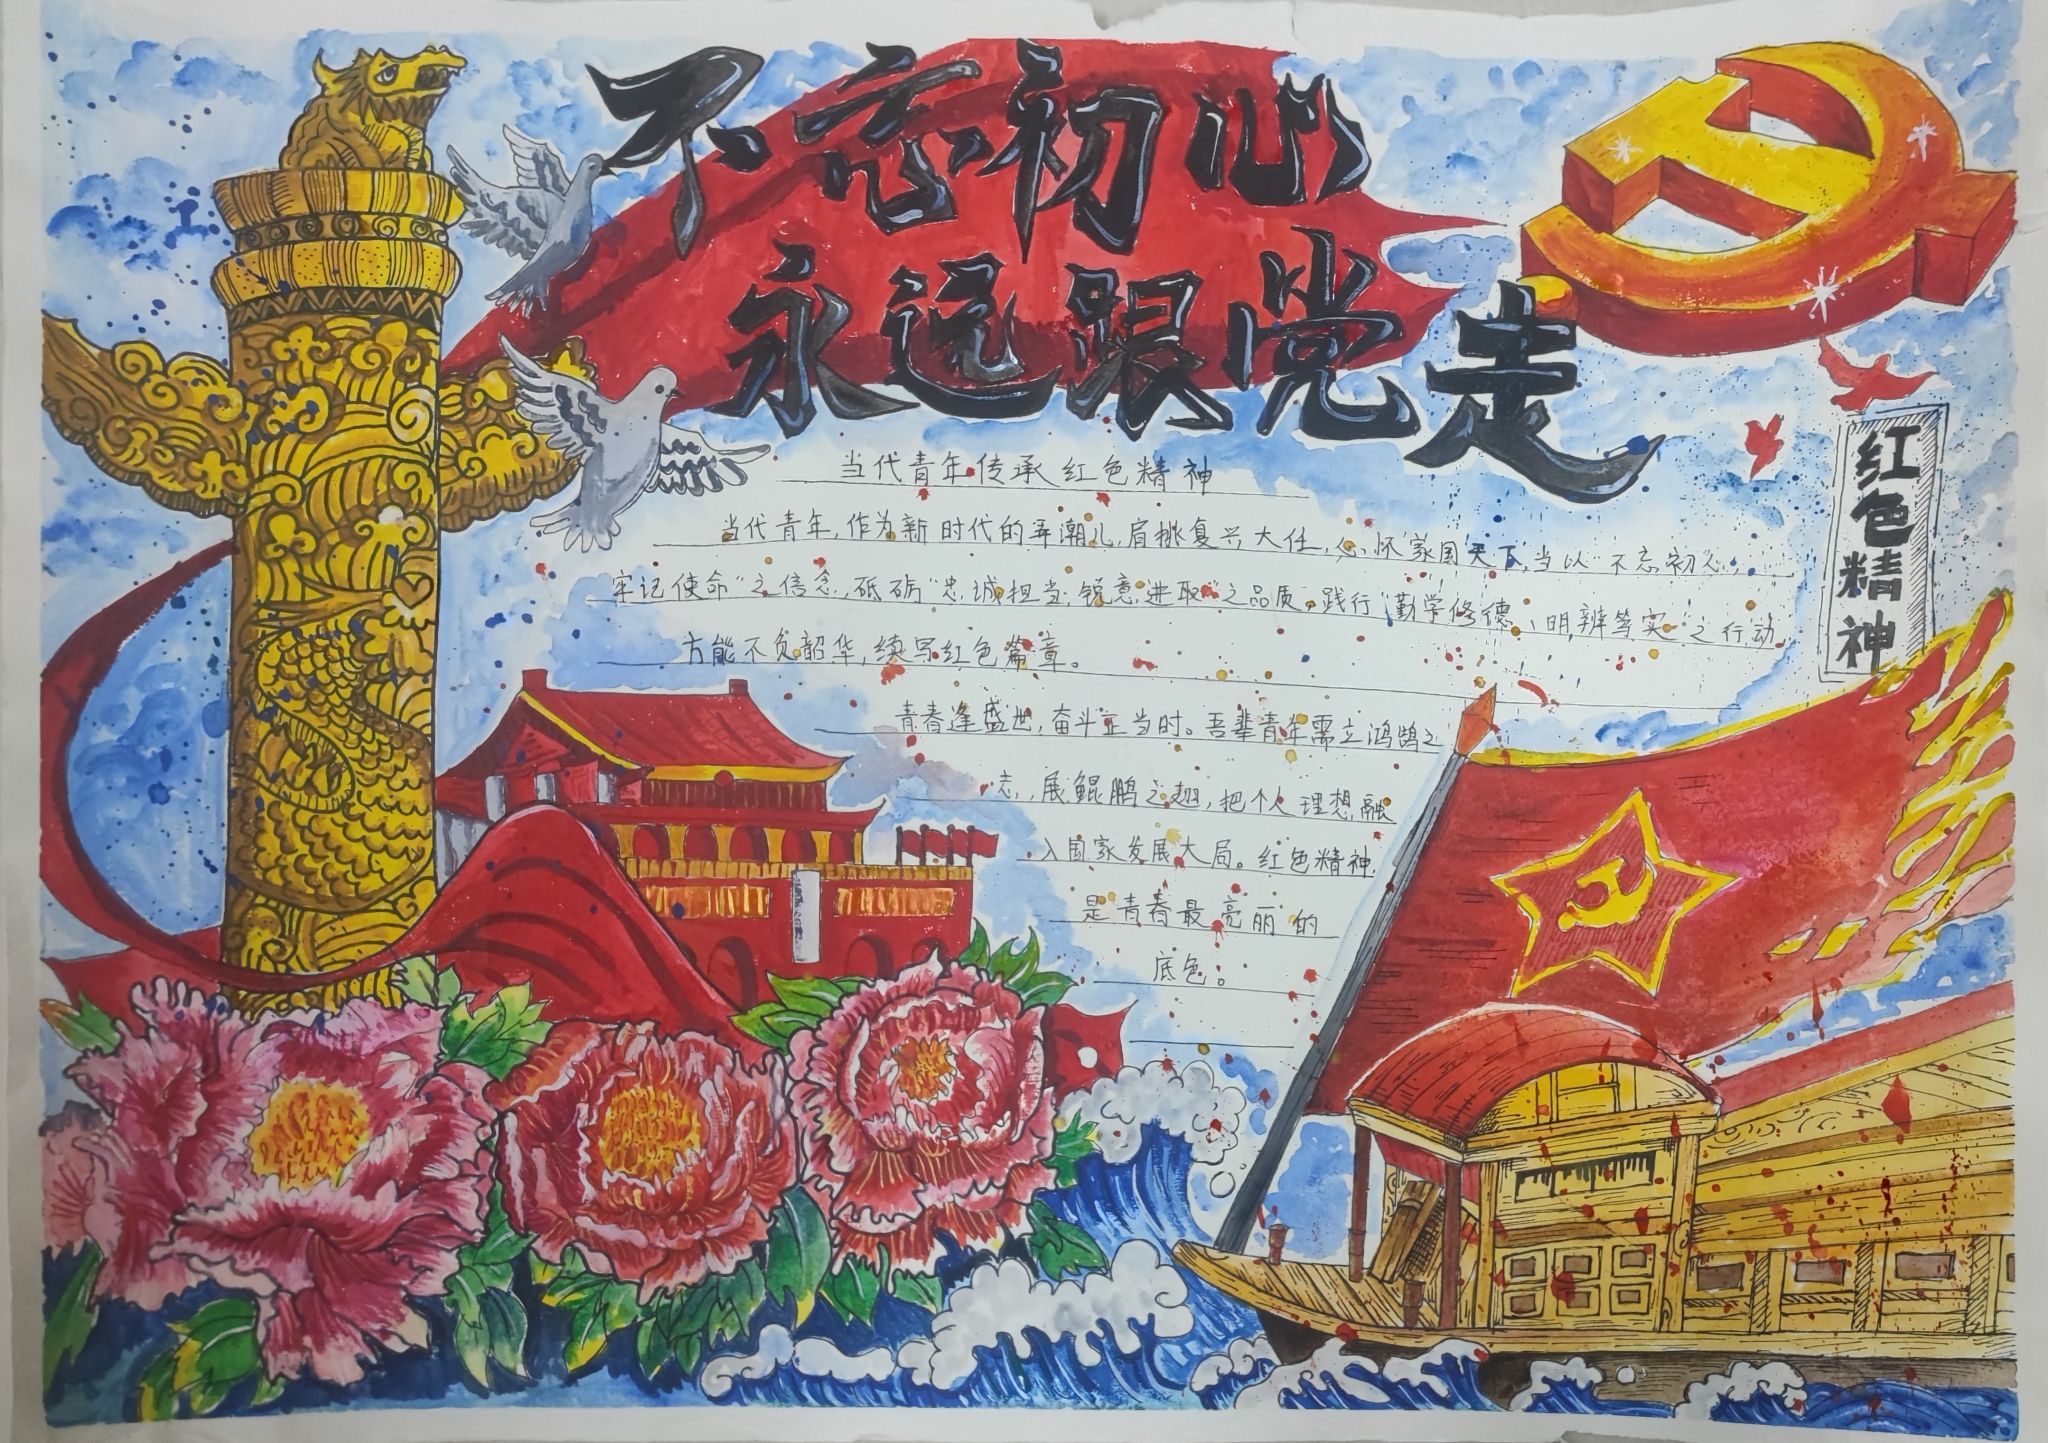 不忘初心
永远跟党走
红色精神
当代青年传承红色精神
当代青年，作为新时代的弄潮儿，肩挑复兴大任，心怀家国天下，当以"不忘初心，
牢记使命"之信念，砥砺"忠诚担当，锐意进取"之品质，践行"勤学修德、明辨笃实"之行动
方能不负韶华，续写红色篇章。
青春逢盛世，奋斗正当时。吾辈青年需立鸿鹄之
志，展鲲鹏之翅，把个人理想融
入国家发展大局。红色精神，
是青春最亮丽的
底色。